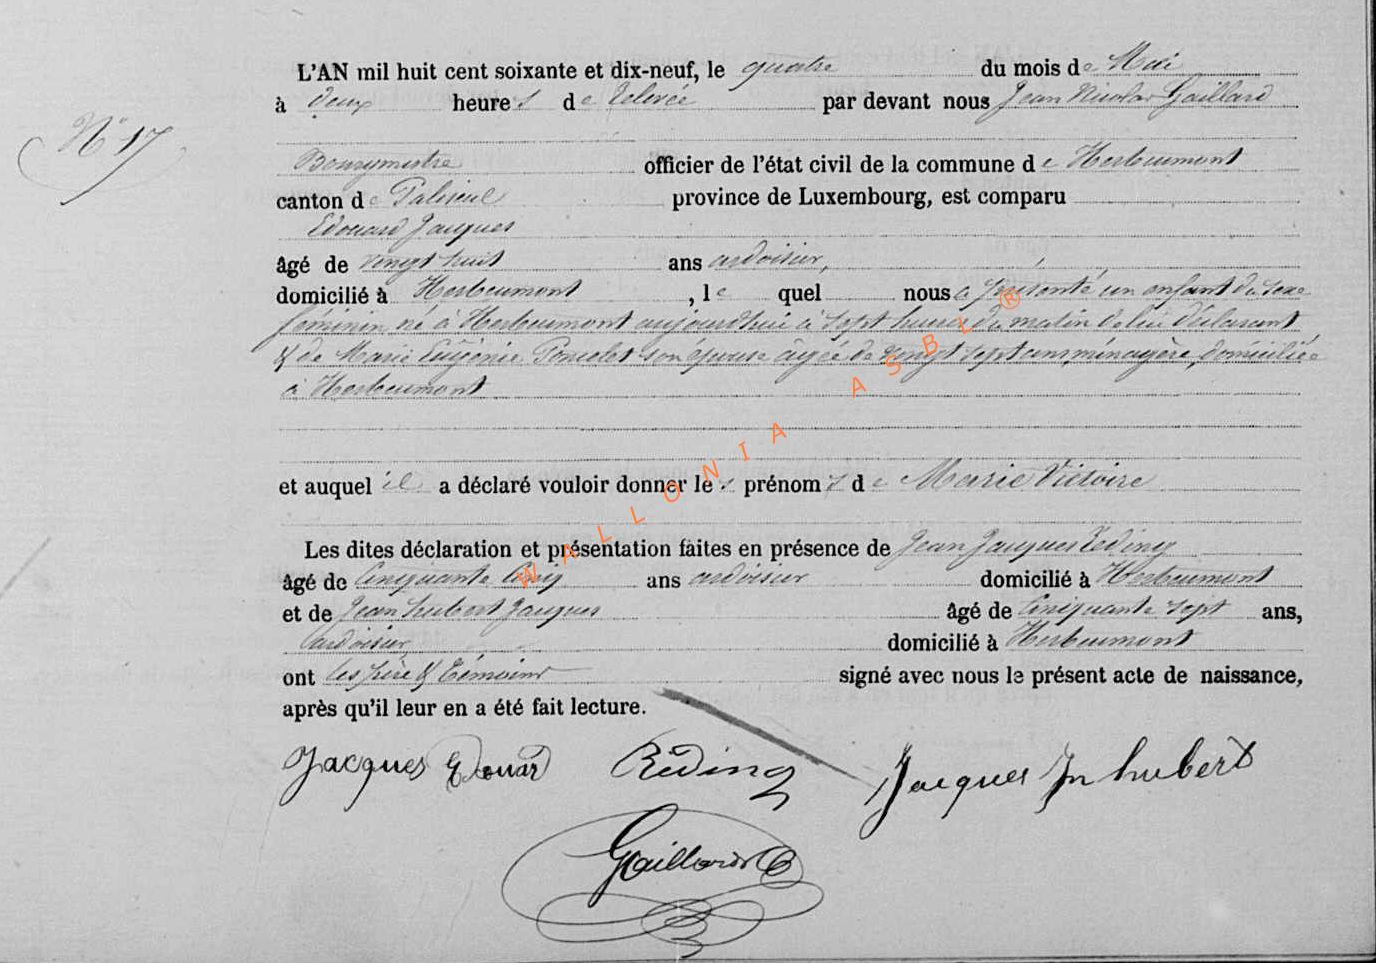 L'AN mil huit cent soixante et dix-neuf, le quatre du mois de Mai
à deux heures de relevée par devant nous Jean Nicolas Gaillard
N° 17
Bourgmestre officier de l'état civil de la commune de Herbeumont
canton de Paliseul province de Luxembourg, est comparu
Edouard Jacques
âgé de vingt huit ans ardoisier,
domicilié à Herbeumont, lequel nous a présenté un enfant du sexe
féminin né à Herbeumont aujourd'hui à sept heures du matin de lui déclarant
& de Marie Eugénie Poncelet son épouse âgée de vingt sept ans, ménagère, domiciliée
à Herbeumont
et auquel il a déclaré vouloir donner les prénoms de Marie Victoire
Les dites déclaration et présentation faites en présence de Jean Jacques Réding
âgé de Cinquante Cinq ans ardoisier domicilié à Herbeumont
et de Jean hubert Jacques âgé de Cinquante sept ans,
ardoisier, domicilié à Herbeumont
ont les père & témoins signé avec nous le présent acte de naissance,
après qu'il leur en a été fait lecture.
Jacques Edouard Réding Jacques Jn hubert
Gaillard
WALLONIA ASBL ®